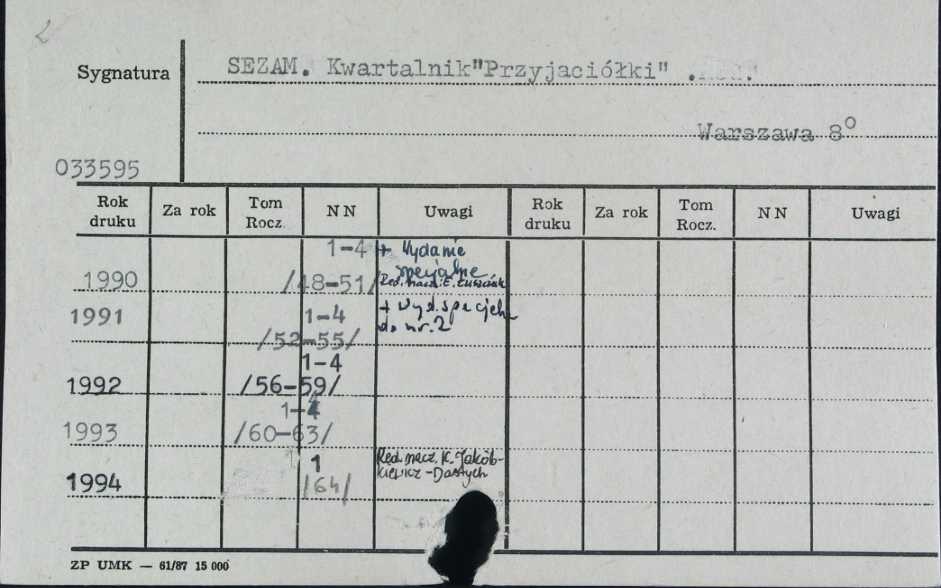 2
SEZAM. Kwartalnik "Przyjaciółki" .
Sygnatura
Warszawa 8°
033595
Rok druku Za rok Tom Rocz. N N Uwagi Rok druku Za rok Tom Rocz. N N Uwagi
1-4 + Wydanie
specjalne
1990 /48-51/ Red. nacz. E.
1991 1-4 + wyd. specjaln
do nr. 2
/52-55/
1-4
1992 /56-59/
1-4
1993 /60-63/
1 Red. nacz. K. Jakób-
kiewicz-Dastych
1994 /64/
ZP UMK — 61/87 15 000